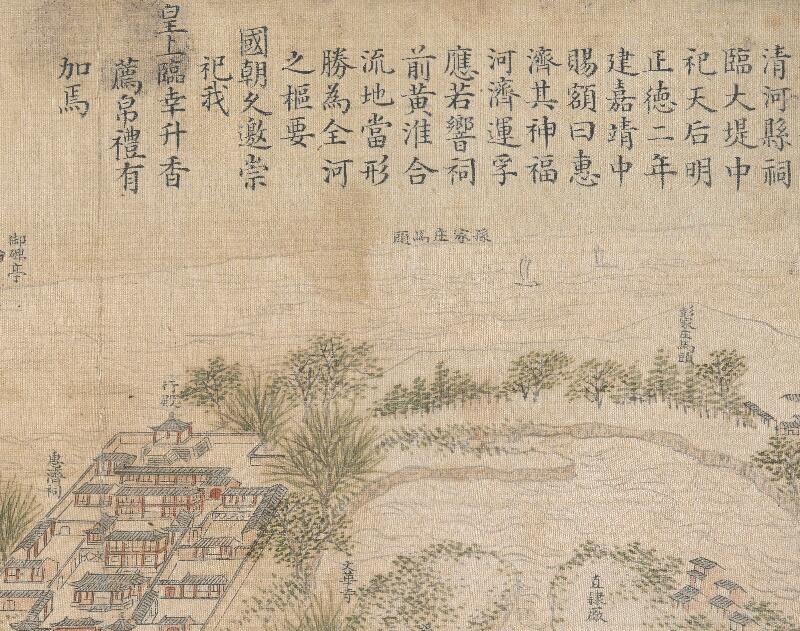 清河縣祠
臨大堤中
祀天后明
正德二年
建嘉靖中
賜額曰惠
濟其神福
河濟運孚
應若響祠
前黃淮合
流地當形
勝為全河
之樞要
國朝久邀崇
祀我
皇上臨幸升香
薦帛禮有
加焉
家庄馬頭
彭家庄馬頭
御碑亭
行殿
惠濟祠
文華寺
直隸厰